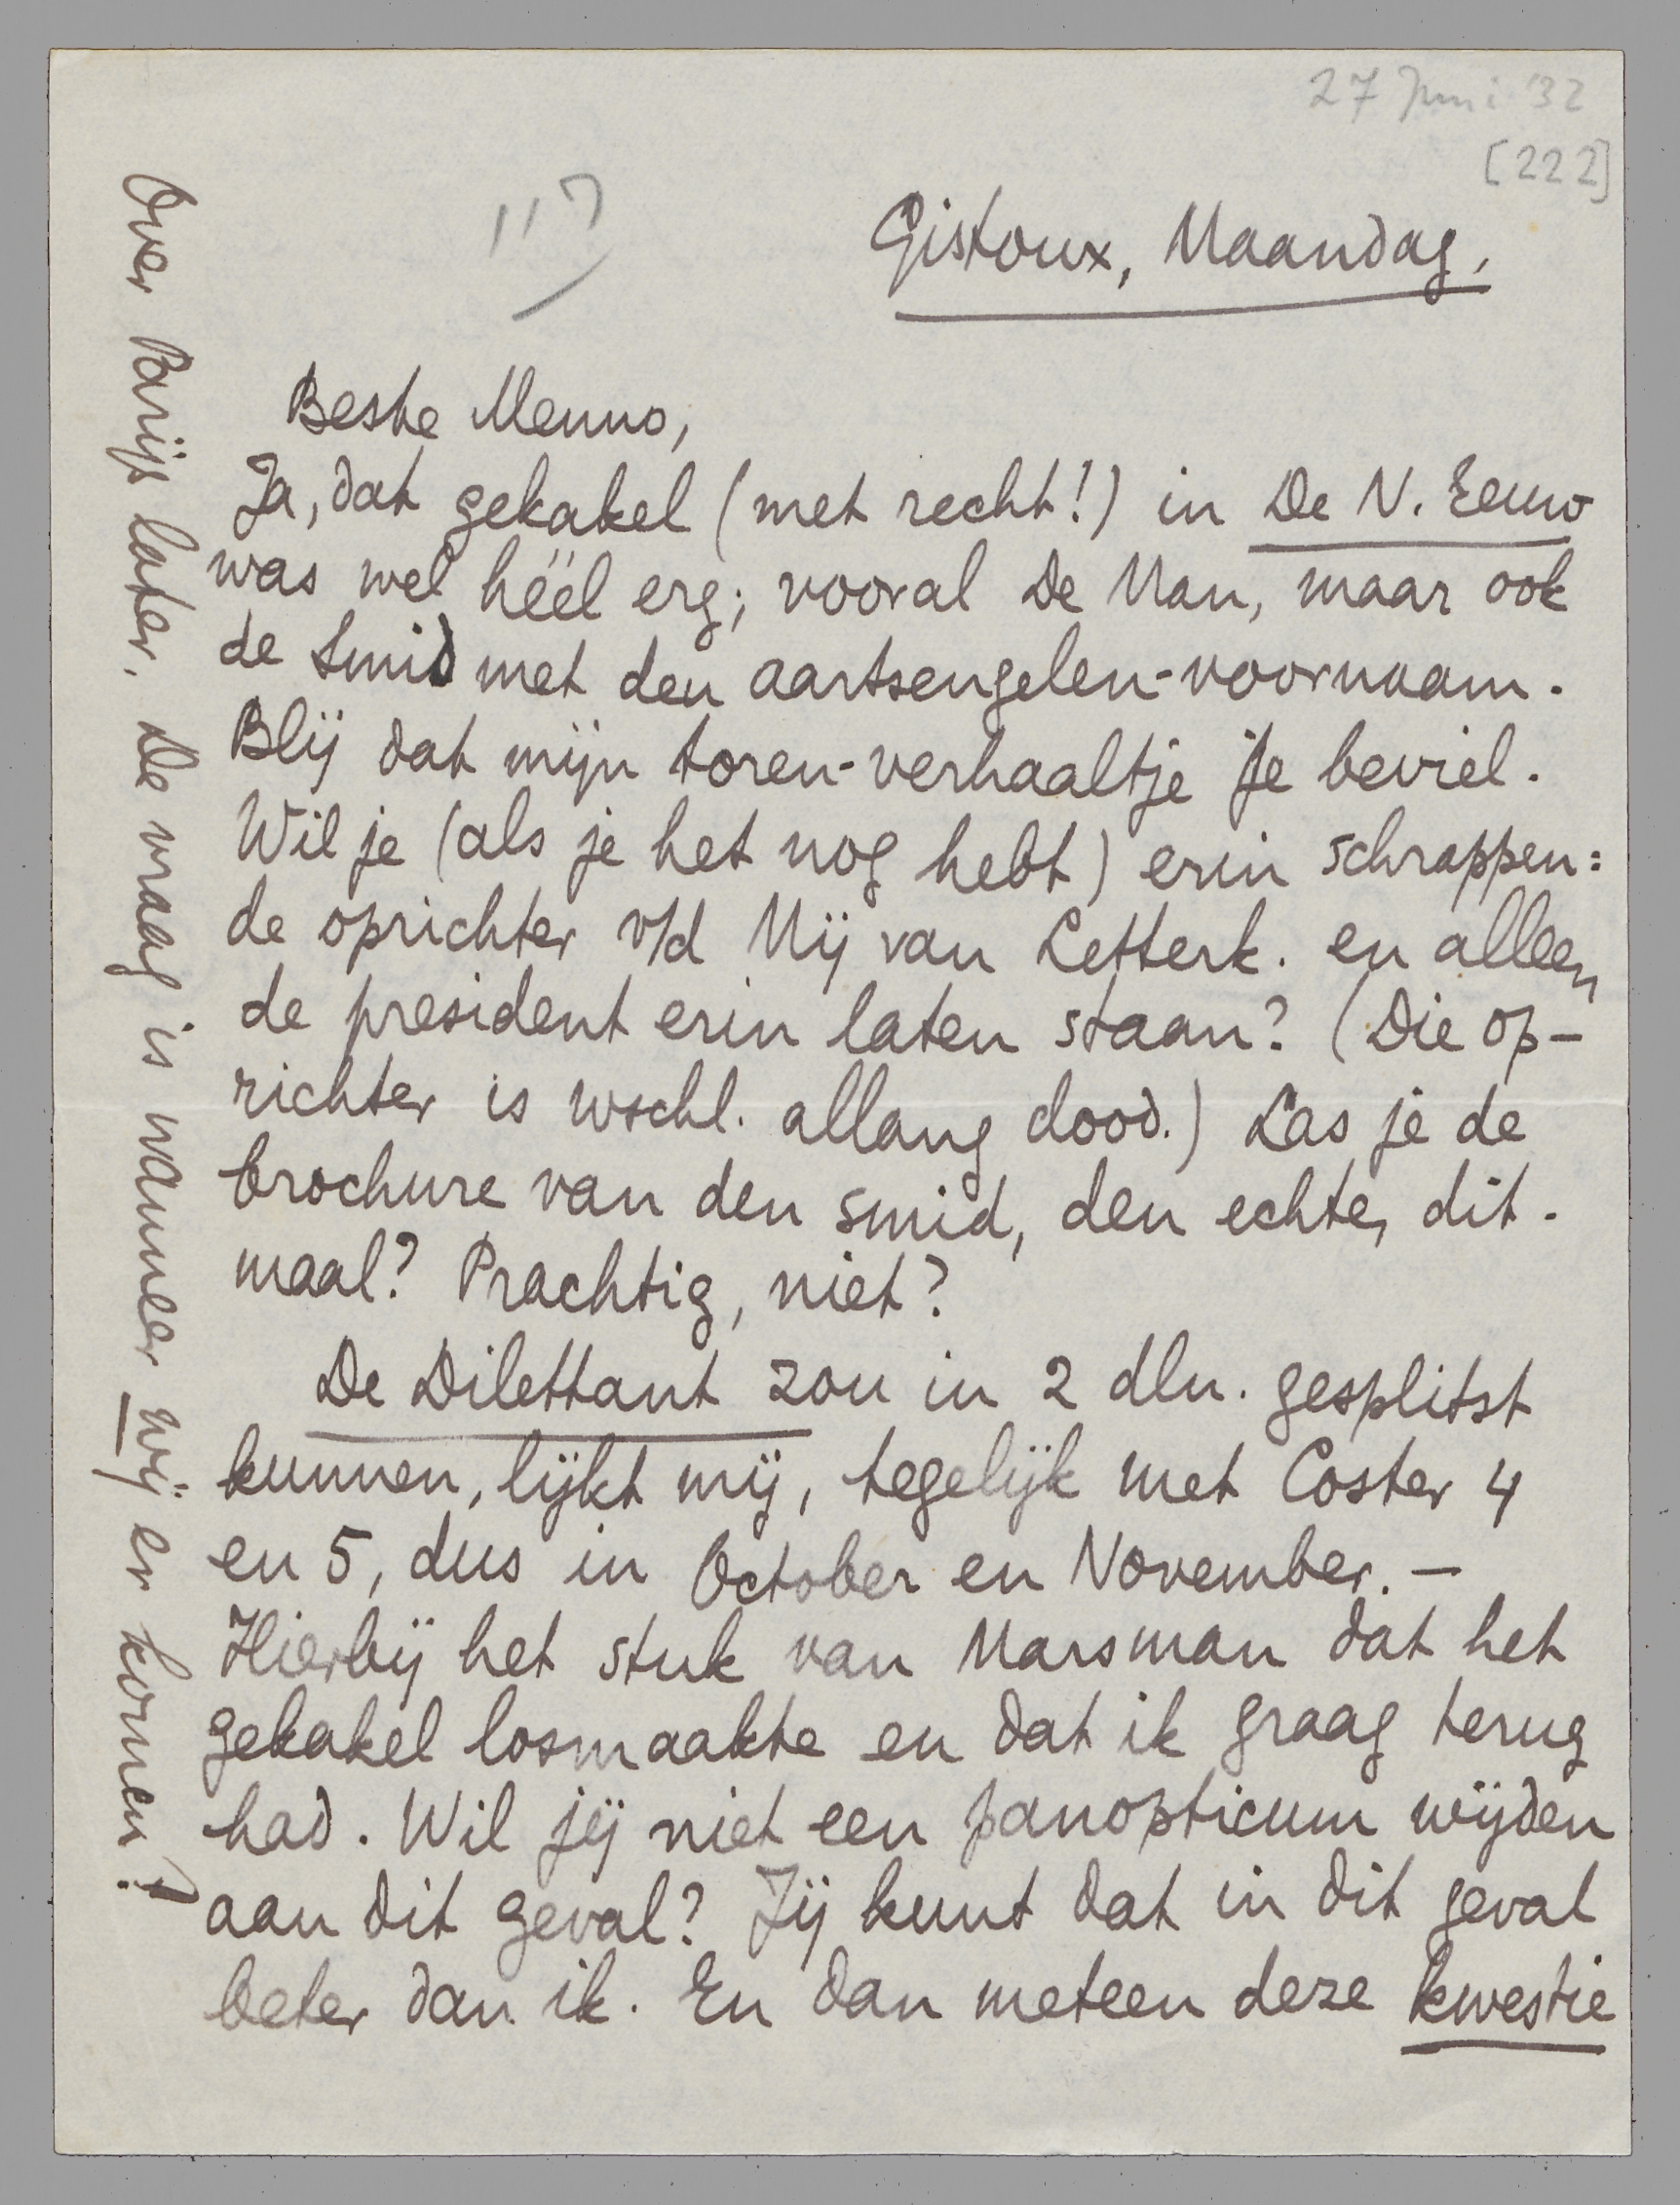 27 Juni '32
[222]
117
Gistoux, Maandag.
Beste Menno,
Ja, dat gekakel (met recht!) in De N. Eeuw
was wel héél erg; vooral De Man, maar ook
de Smid met den aartsengelen-voornaam.
Blij dat mijn toren-verhaaltje je beviel.
Wil je (als je het nog hebt) erin schrappen:
de oprichter v/d Mij van Letterk. en alleen
de president erin laten staan? (Die op-
richter is wschl. allang dood.) Las je de
brochure van den smid, den echte, dit-
maal? Prachtig, niet?
De Dilettant zou in 2 dln. gesplitst
kunnen, lijkt mij, tegelijk met Coster 4
en 5, dus in October en November. —
Hierbij het stuk van Marsman dat het
gekakel losmaakte en dat ik graag terug
had. Wil jij niet een panopticum wijden
aan dit geval? Jij kunt dat in dit geval
beter dan ik. En dan meteen deze kwestie
Over Parijs later. De vraag is wanneer wij er komen!